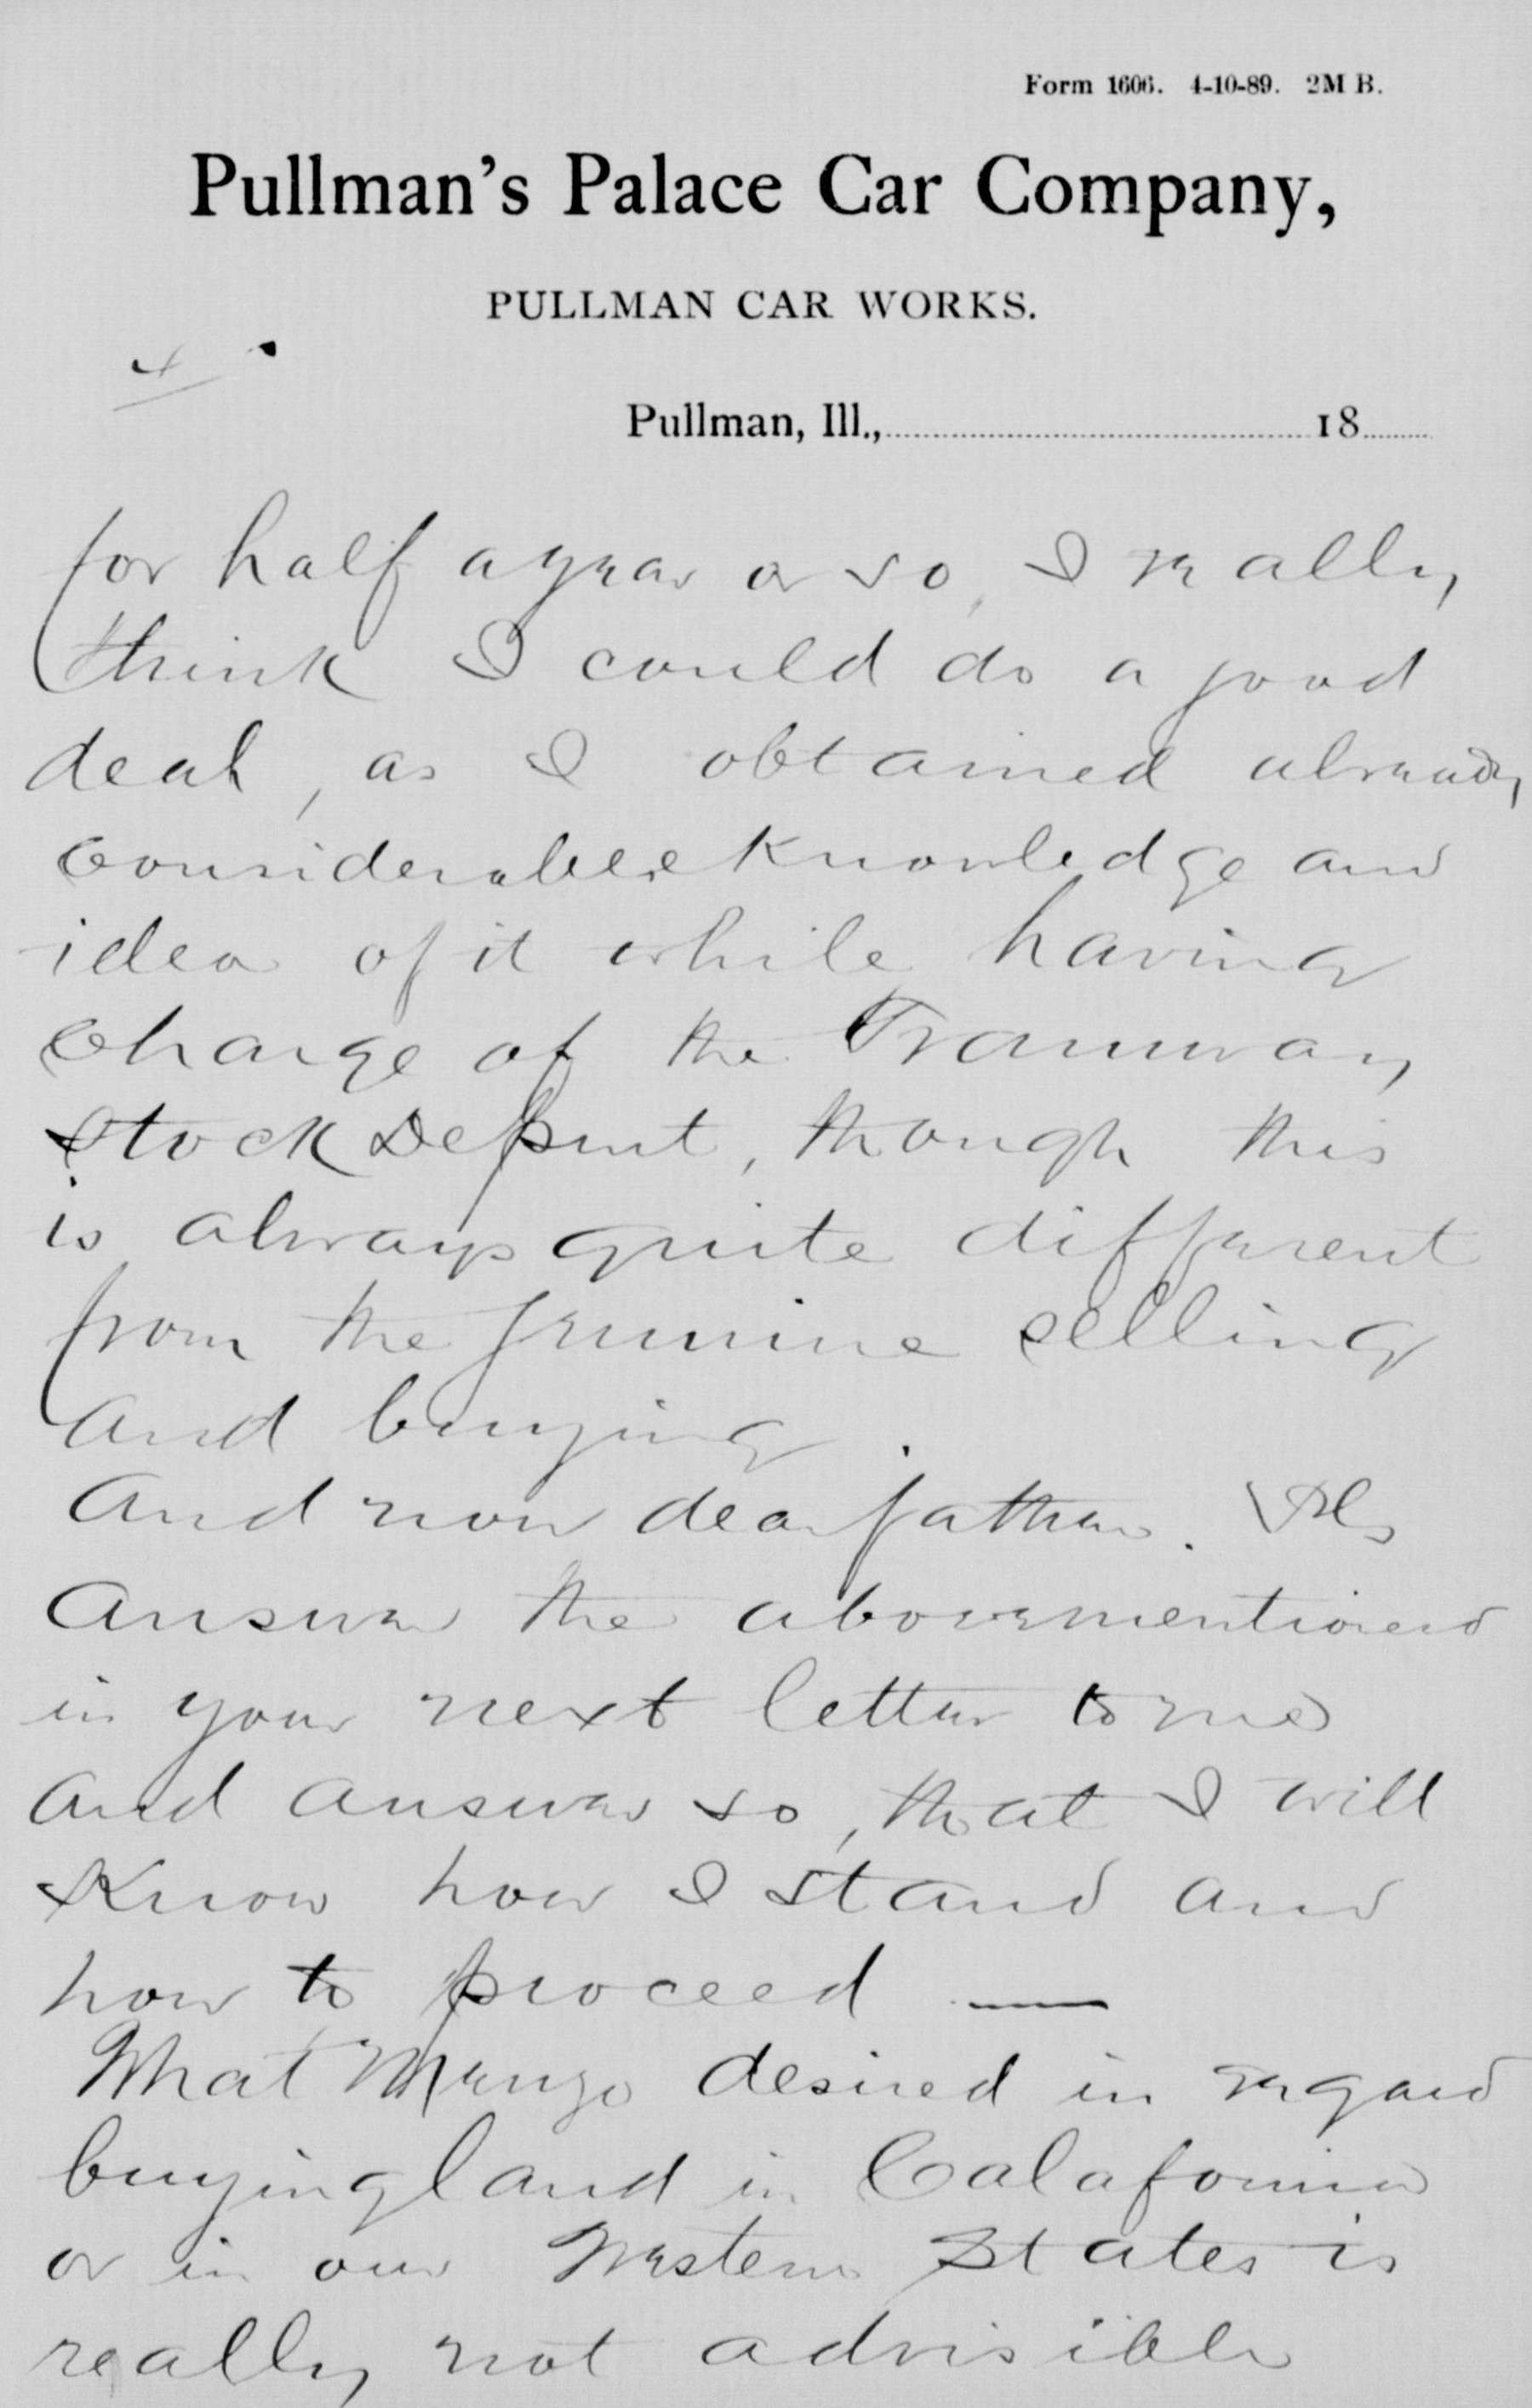 Form 1606. 4-10-89. 2M B.
Pullman's Palace Car Company,
PULLMAN CAR WORKS.
4
Pullman, Ill., 18
for half a year or so, I really
think I could do a good
deal, as I obtained already
considerable knowledge and
idea of it while having
charge of the Tramway
stock Depmt, though this
is always quite different
from the genuine selling
and buying.
And now dear father. Pls
answer the abovementioned
in your next letter to me
and answer so, that I will
Know how I stand and
how to proceed —
What desired in regard
buying land in Calafornia
or in our Western States is
really not advisible